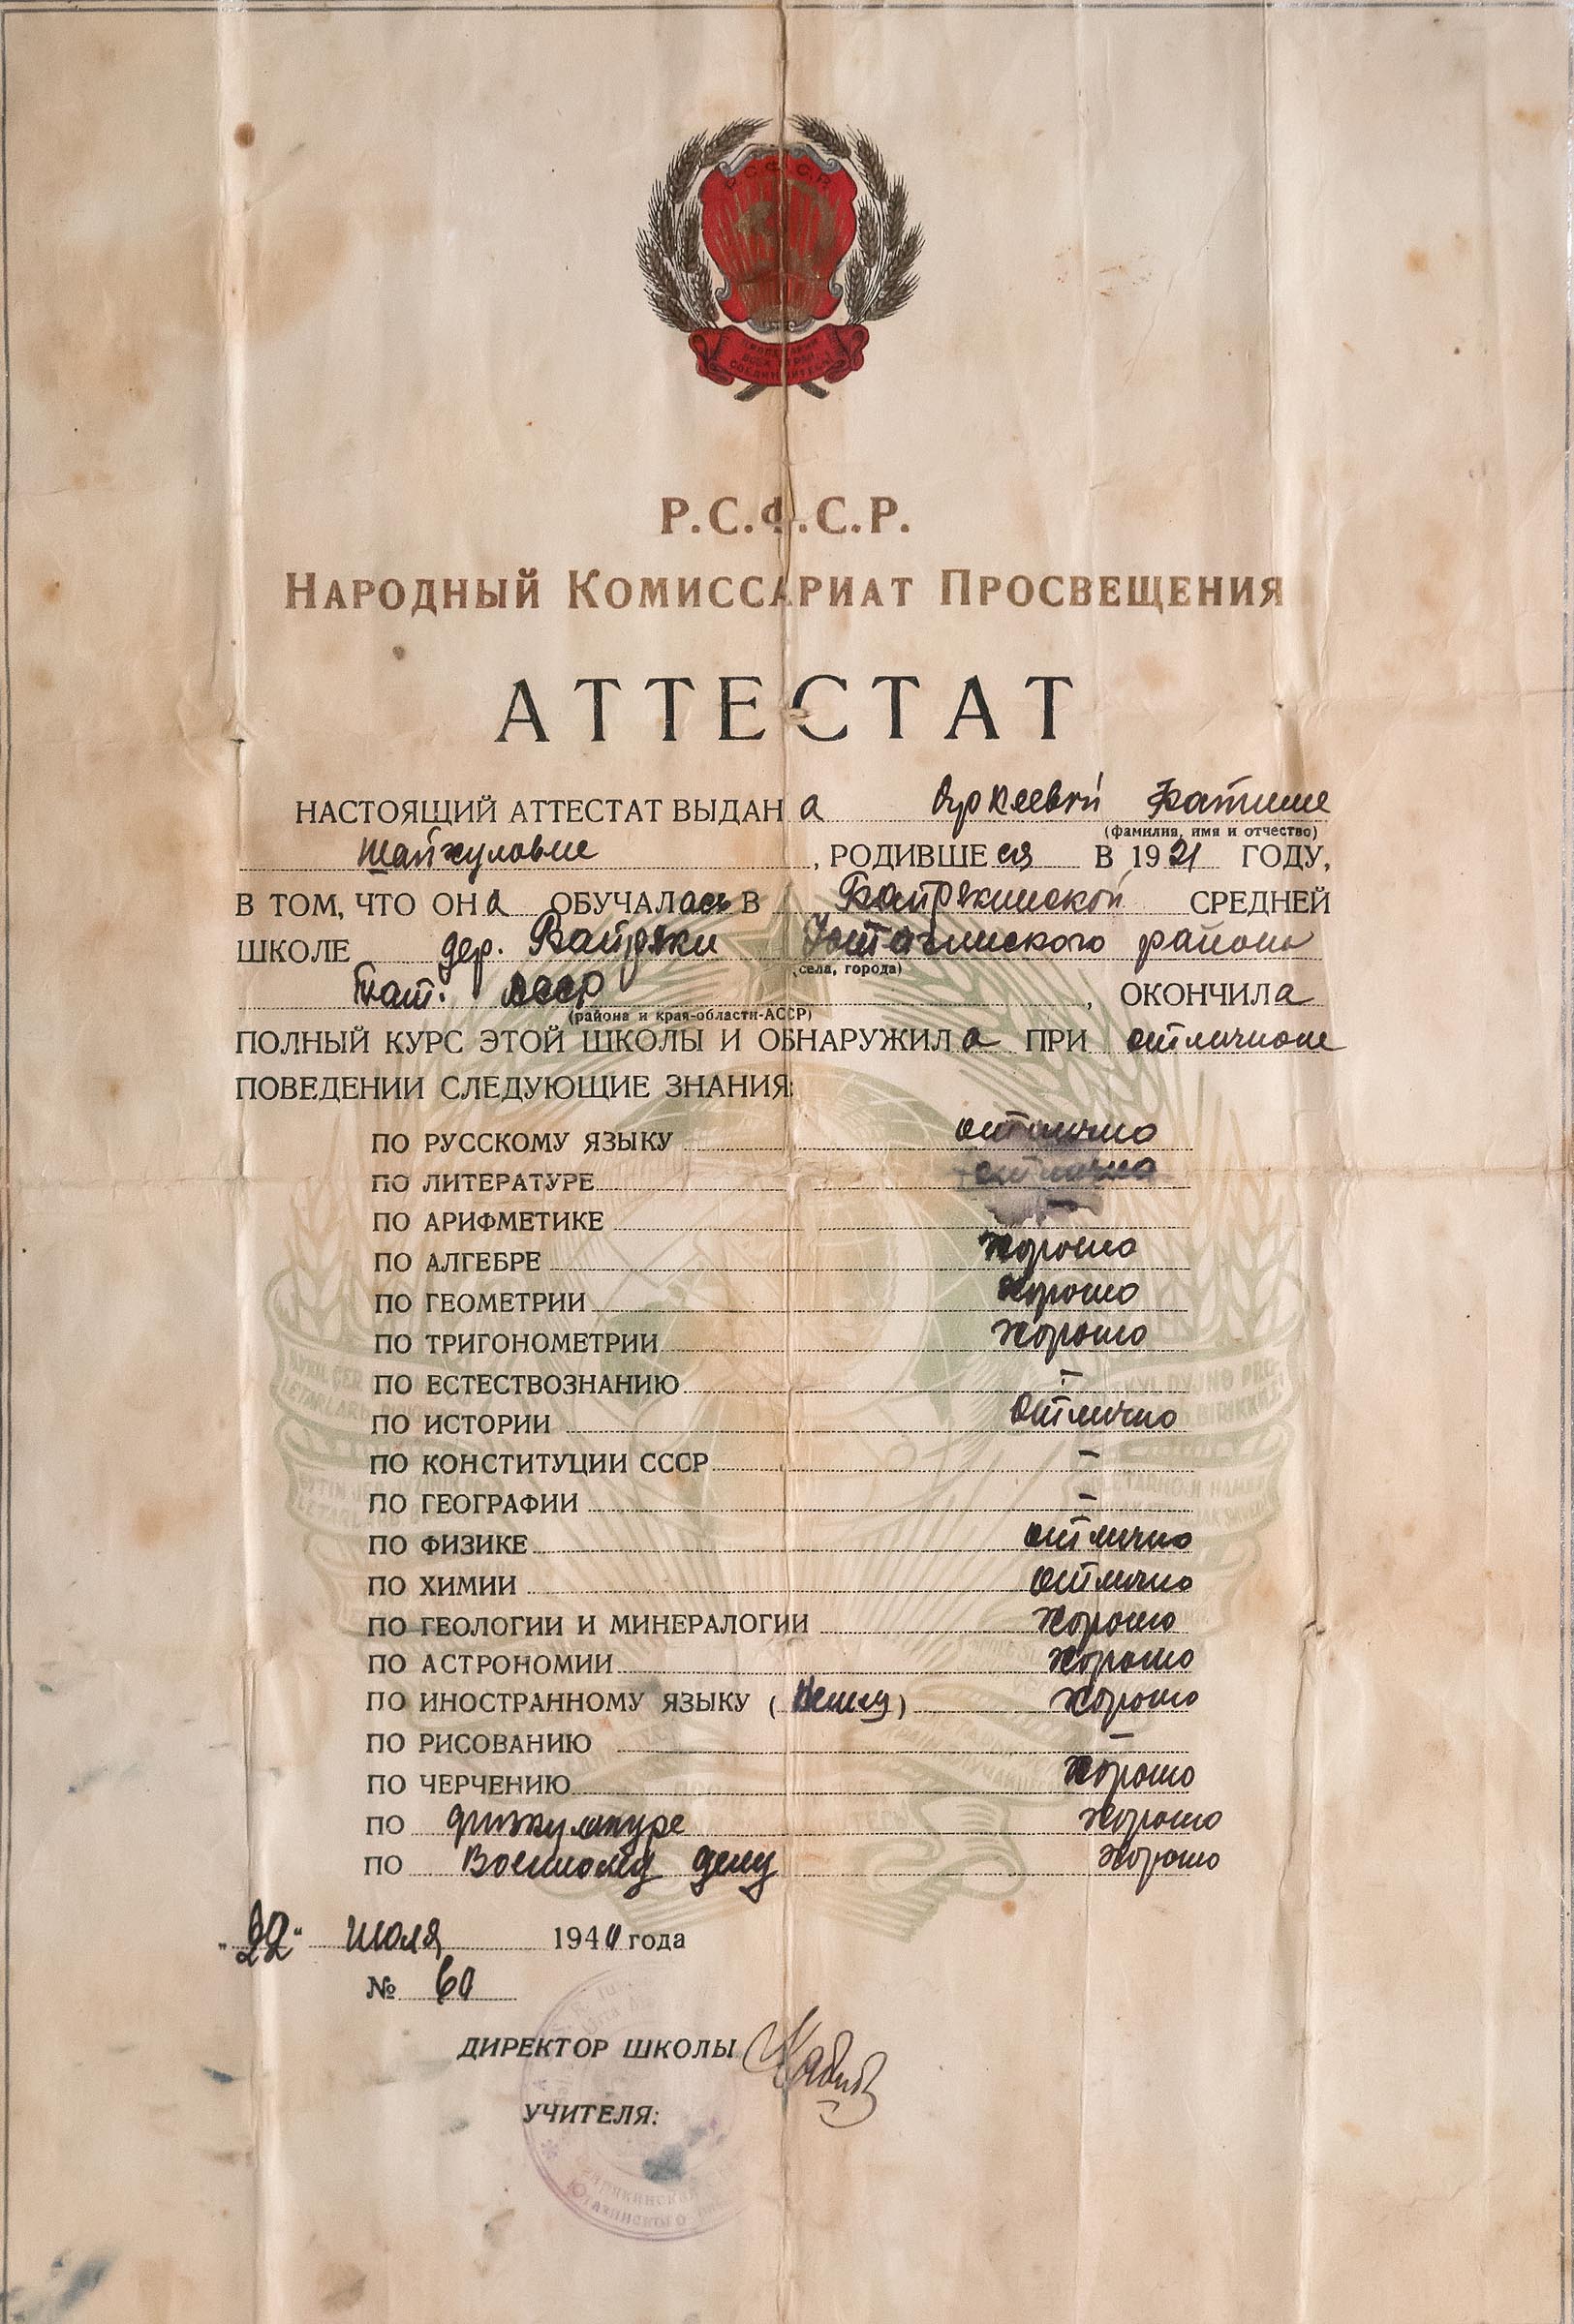 Р.С.Ф.С.Р.
ПРОЛЕТАРИИ
ВСЕХ СТРАН
СОЕДИНЯЙТЕСЬ!
Р.С.Ф.С.Р.
НАРОДНЫЙ КОМИССАРИАТ ПРОСВЕЩЕНИЯ
АТТЕСТАТ
НАСТОЯЩИЙ АТТЕСТАТ ВЫДАН а Фатиме
(фамилия, имя и отчество)
РОДИВШЕЙСЯ В 1921 ГОДУ,
В ТОМ, ЧТО ОНА ОБУЧАЛАСЬ В Байрякинской СРЕДНЕЙ
ШКОЛЕ дер. Байряки Ютазинского района
(села, города)
Тат. АССР, ОКОНЧИЛА
(района и края-области-АССР)
ПОЛНЫЙ КУРС ЭТОЙ ШКОЛЫ И ОБНАРУЖИЛА ПРИ отличном
ПОВЕДЕНИИ СЛЕДУЮЩИЕ ЗНАНИЯ:
ПО РУССКОМУ ЯЗЫКУ отлично
ПО ЛИТЕРАТУРЕ отлично
ПО АРИФМЕТИКЕ —
ПО АЛГЕБРЕ хорошо
ПО ГЕОМЕТРИИ хорошо
ПО ТРИГОНОМЕТРИИ хорошо
ПО ЕСТЕСТВОЗНАНИЮ —
ПО ИСТОРИИ отлично
ПО КОНСТИТУЦИИ СССР —
ПО ГЕОГРАФИИ —
ПО ФИЗИКЕ отлично
ПО ХИМИИ отлично
ПО ГЕОЛОГИИ И МИНЕРАЛОГИИ хорошо
ПО АСТРОНОМИИ хорошо
ПО ИНОСТРАННОМУ ЯЗЫКУ () хорошо
ПО РИСОВАНИЮ —
ПО ЧЕРЧЕНИЮ хорошо
ПО физкультуре хорошо
ПО Военному делу хорошо
"22" июля 1940 года
№ 60
ДИРЕКТОР ШКОЛЫ
УЧИТЕЛЯ: